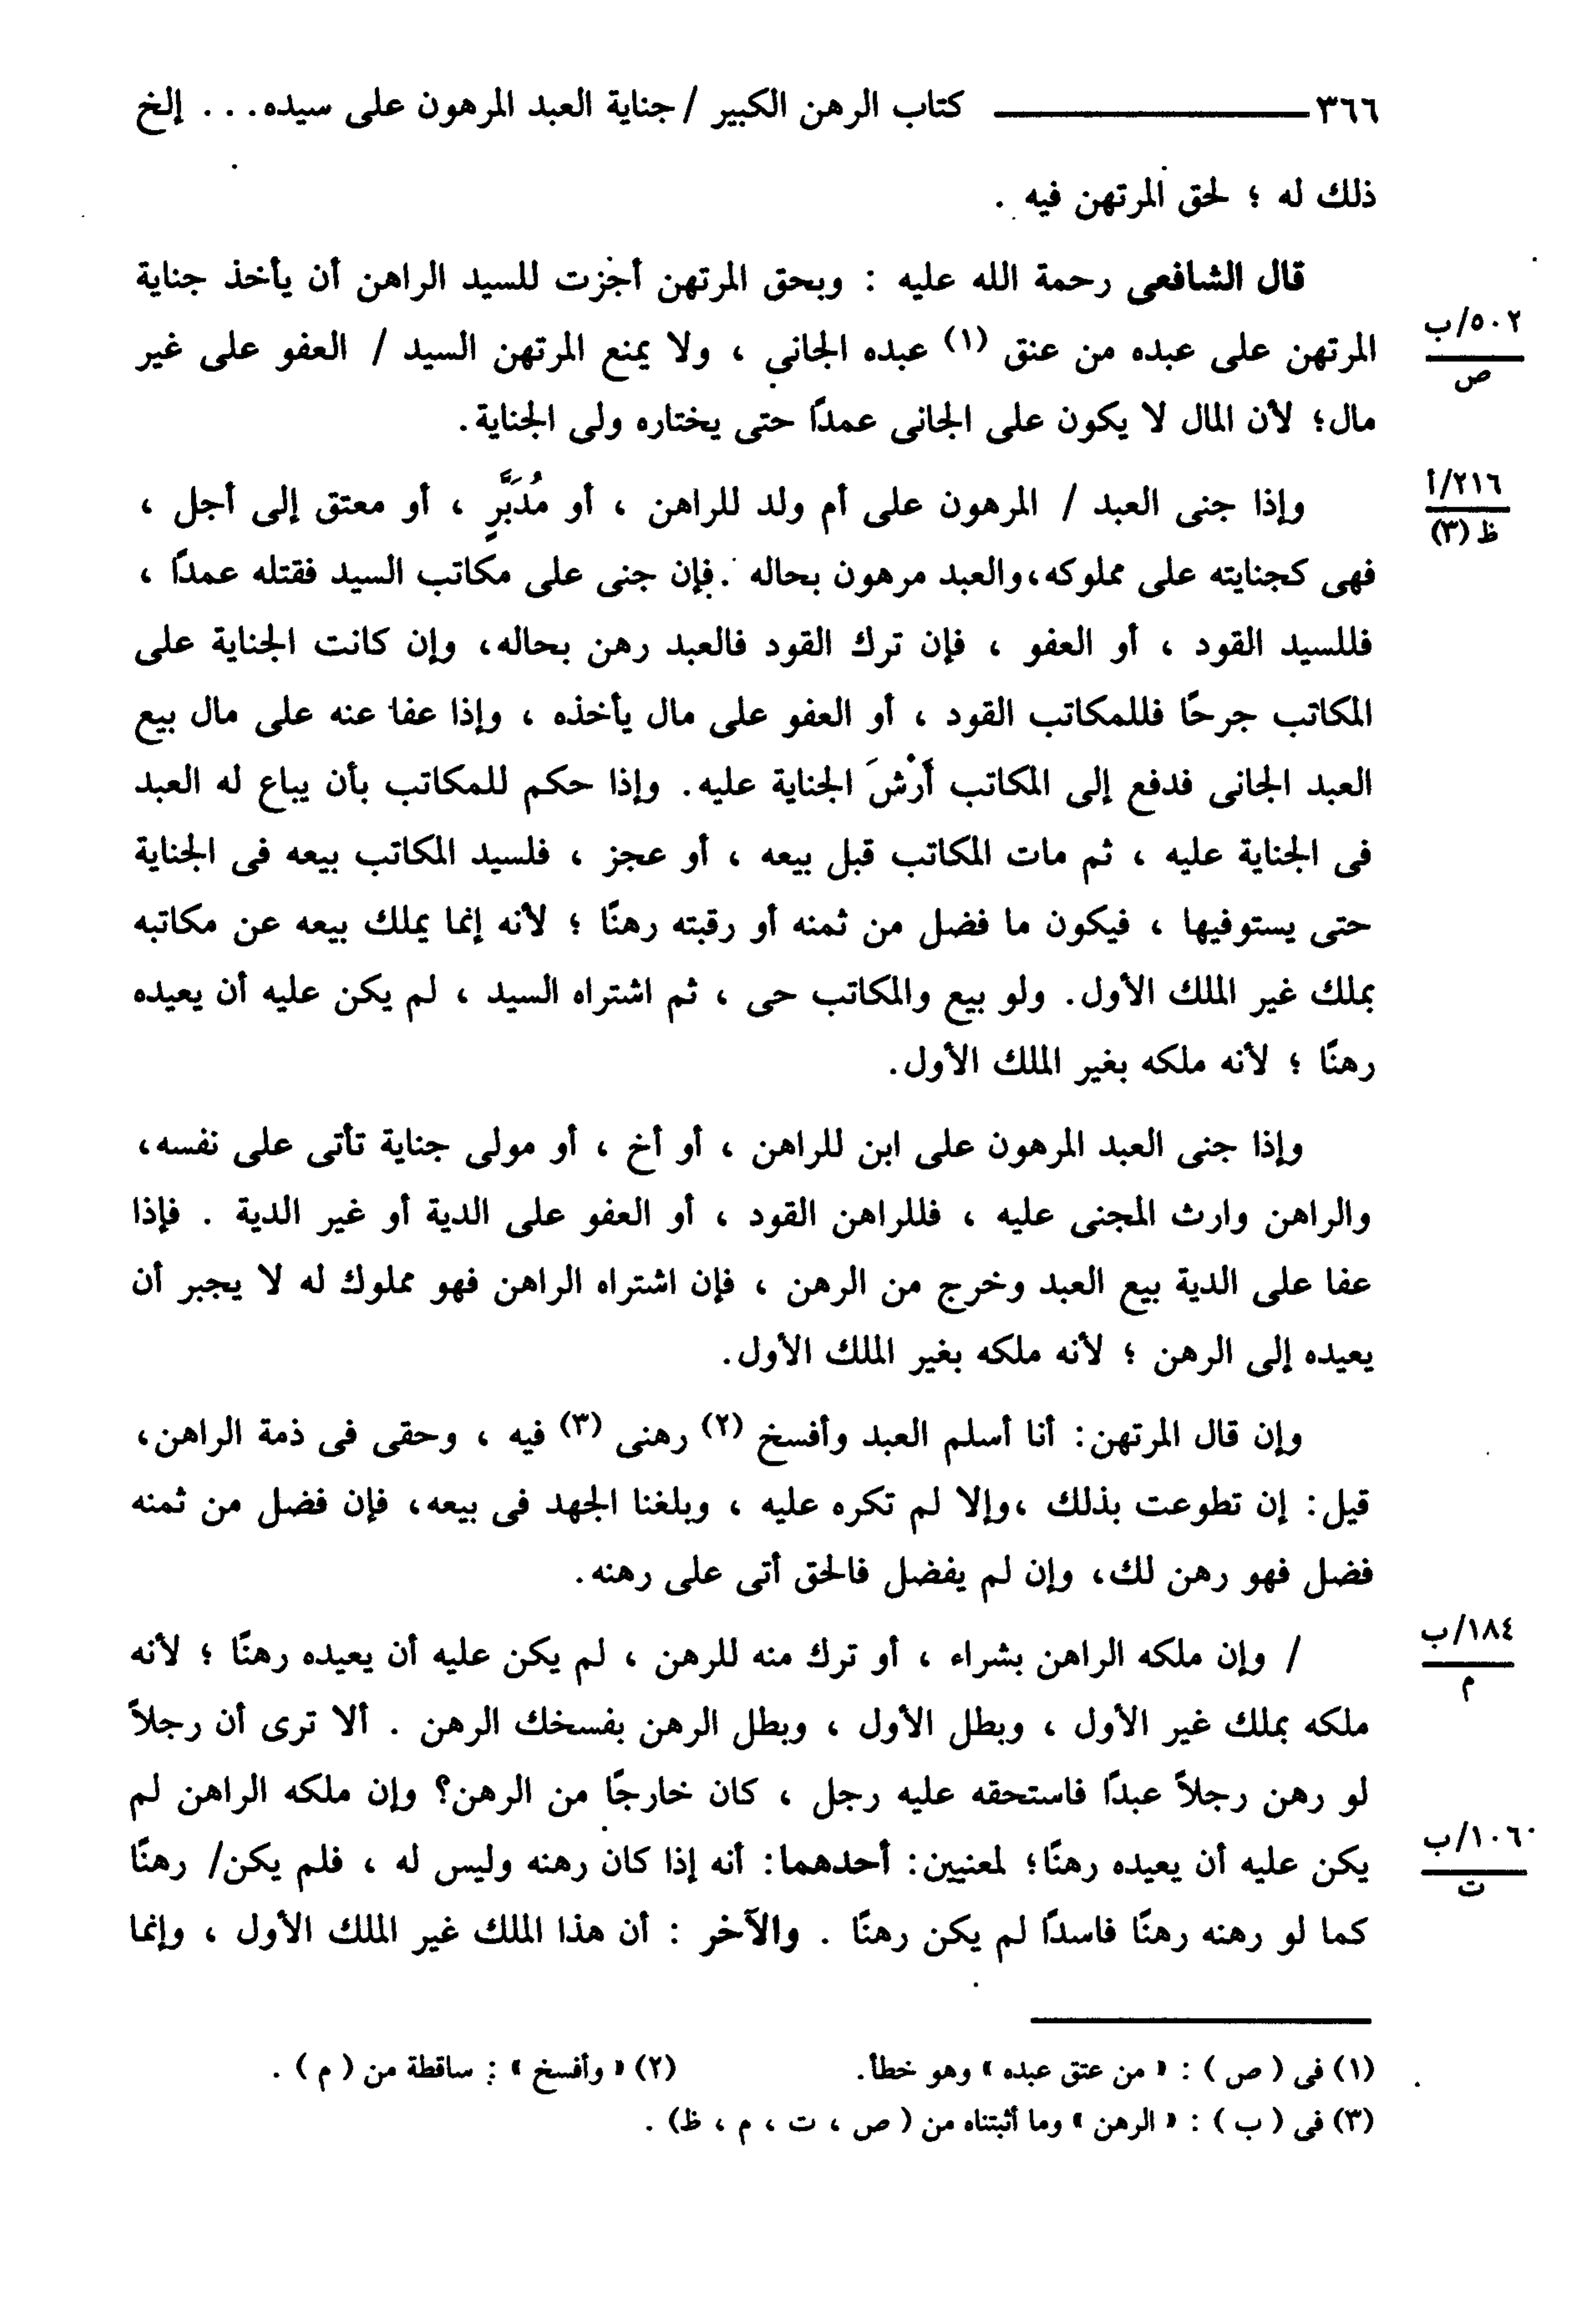 ٣٦٦ ـــــــــــــــ كتاب الرهن الكبير / جناية العبد المرهون على سيده . . . إلخ
ذلك له ؛ لحق المرتهن فيه .
قال الشافعى رحمة الله عليه : وبحق المرتهن أجزت للسيد الراهن أن يأخذ جناية
٥٠٢/ب
المرتهن على عبده من عنق (١) عبده الجانى ، ولا يمنع المرتهن السيد / العفو على غير
ص
مال؛ لأن المال لا يكون على الجانى عمدًا حتى يختاره ولى الجناية.
٢١٦/أ
وإذا جنى العبد / المرهون على أم ولد للراهن ، أو مُدَبَّرٍ ، أو معتق إلى أجل ،
ظ (٣)
فهى كجنايته على مملوكه،والعبد مرهون بحاله .فإن جنى على مكاتب السيد فقتله عمدًا ،
فللسيد القود ، أو العفو ، فإن ترك القود فالعبد رهن بحاله، وإن كانت الجناية على
المكاتب جرحًا فللمكاتب القود ، أو العفو على مال يأخذه ، وإذا عفا عنه على مال بيع
العبد الجانى فدفع إلى المكاتب أَرْشَ الجناية عليه. وإذا حكم للمكاتب بأن يباع له العبد
فى الجناية عليه ، ثم مات المكاتب قبل بيعه ، أو عجز ، فلسيد المكاتب بيعه فى الجناية
حتى يستوفيها ، فيكون ما فضل من ثمنه أو رقبته رهنًا ؛ لأنه إنما يملك بيعه عن مكاتبه
بملك غير الملك الأول. ولو بيع والمكاتب حى ، ثم اشتراه السيد ، لم يكن عليه أن يعيده
رهنًا ؛ لأنه ملكه بغير الملك الأول.
وإذا جنى العبد المرهون على ابن للراهن ، أو أخ ، أو مولى جناية تأتى على نفسه،
والراهن وارث المجنى عليه ، فللراهن القود ، أو العفو على الدية أو غير الدية . فإذا
عفا على الدية بيع العبد وخرج من الرهن ، فإن اشتراه الراهن فهو مملوك له لا يجبر أن
يعيده إلى الرهن ؛ لأنه ملكه بغير الملك الأول.
وإن قال المرتهن: أنا أسلم العبد وأفسخ (٢) رهنى (٣) فيه ، وحقى فى ذمة الراهن،
قيل: إن تطوعت بذلك ،وإلا لم تكره عليه ، وبلغنا الجهد فى بيعه، فإن فضل من ثمنه
فضل فهو رهن لك، وإن لم يفضل فالحق أتى على رهنه.
١٨٤/ب
/ وإن ملكه الراهن بشراء ، أو ترك منه للرهن ، لم يكن عليه أن يعيده رهنًا ؛ لأنه
م
ملكه بملك غير الأول ، وبطل الأول ، وبطل الرهن بفسخك الرهن . ألا ترى أن رجلاً
لو رهن رجلاً عبدًا فاستحقه عليه رجل ، كان خارجًا من الرهن؟ وإن ملكه الراهن لم
١٠٦٠/ب
يكن عليه أن يعيده رهنًا؛ لمعنيين: أحدهما: أنه إذا كان رهنه وليس له ، فلم يكن/ رهنًا
ت
كما لو رهنه رهنًا فاسدًا لم يكن رهنًا . والآخر : أن هذا الملك غير الملك الأول ، وإنما
(١) فى ( ص ) : « من عتق عبده » وهو خطأ. (٢) « وأفسخ » : ساقطة من ( م ) .
(٣) فى ( ب ) : « الرهن » وما أثبتناه من ( ص ، ت ، م ، ظ) .